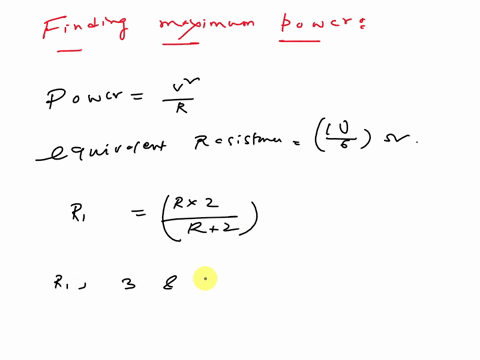 Finding maximum power:
Power = V²/R
equivalent Resistance = (10/6) Ω.
R₁ = (R×2/(R+2))
R₁, 3 8